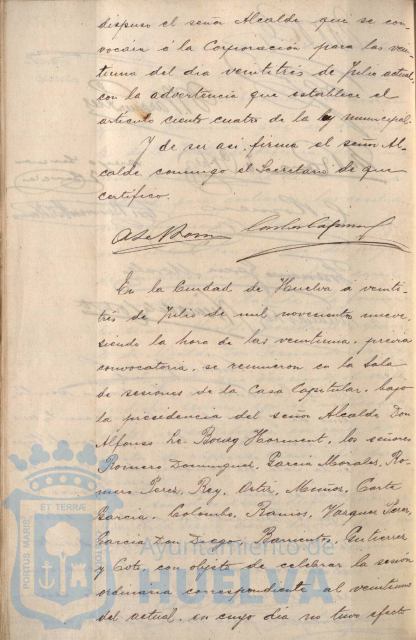 dispuso el señor Alcalde que se con-
vocára á la Corporación para las vein-
tiuna del dia veintitrés de Julio actual,
con la advertencia que establece el
artículo ciento cuatro de la ley municipal.
Y de ser asi, firma el señor Al-
calde conmigo el Secretario de que
certifico.
En la Ciudad de Huelva a veinti-
trés de Julio de mil novecientos nueve,
siendo la hora de las veintiuna, prévia
convocatoria, se reunieron en la Sala
de sesiones de la Casa Capitular, bajo
la presidencia del señor Alcalde Don
Alfonso Le Bourg Horment, los señores
Romero Dominguez, Garcia Morales, Ro-
mero Perez, Rey, Ortiz, Muñoz, Corte
Garcia, Colombo, Ramos, Vazquez Perez,
Garcia Don Diego, Barrientos, Gutierrez
y Coto, con objeto de celebrar la sesión
ordinaria correspondiente al veintiuno
del actual, en cuyo dia no tuvo efecto
PORTUS MARIS ET TERRÆ CUSTODIA
Ayuntamiento de
HUELVA